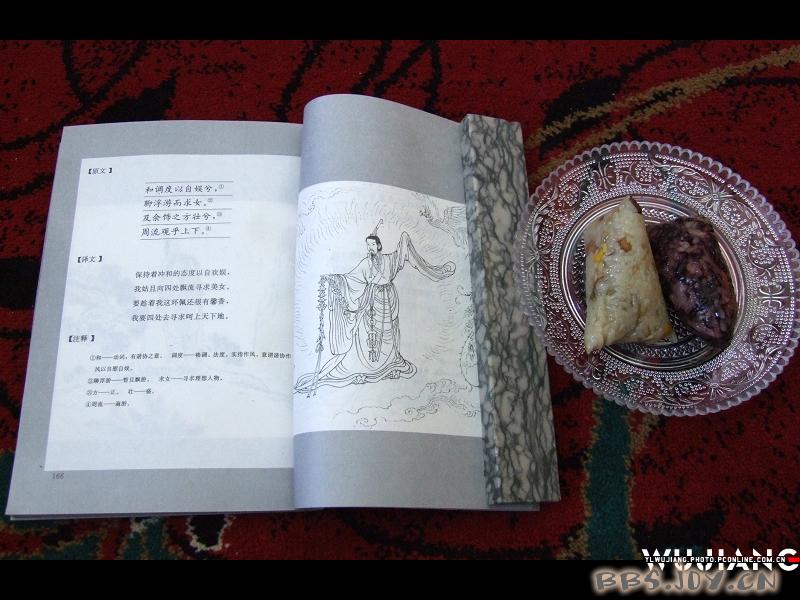 【原文】
和调度以自娱兮，①
聊浮游而求女。②
及余饰之方壮兮，③
周流观乎上下。④
【译文】
保持着冲和的态度以自欢娱，
我姑且向四处飘流寻求美女。
要趁着我这环佩还很有馨香，
我要四处去寻求呵上天下地。
【注释】
①和——动词，有谐协之意。 调度——格调、法度，实指作风，意谓谐协作
风以自慰自娱。
②聊浮游——暂且飘游。 求女——寻求理想人物。
③方——正。 壮——盛。
④周流——遍游。
166
WUJIANG
YLWUJIANG.PHOTO.PCONLINE.COM.CN
BBS.JOY.CN